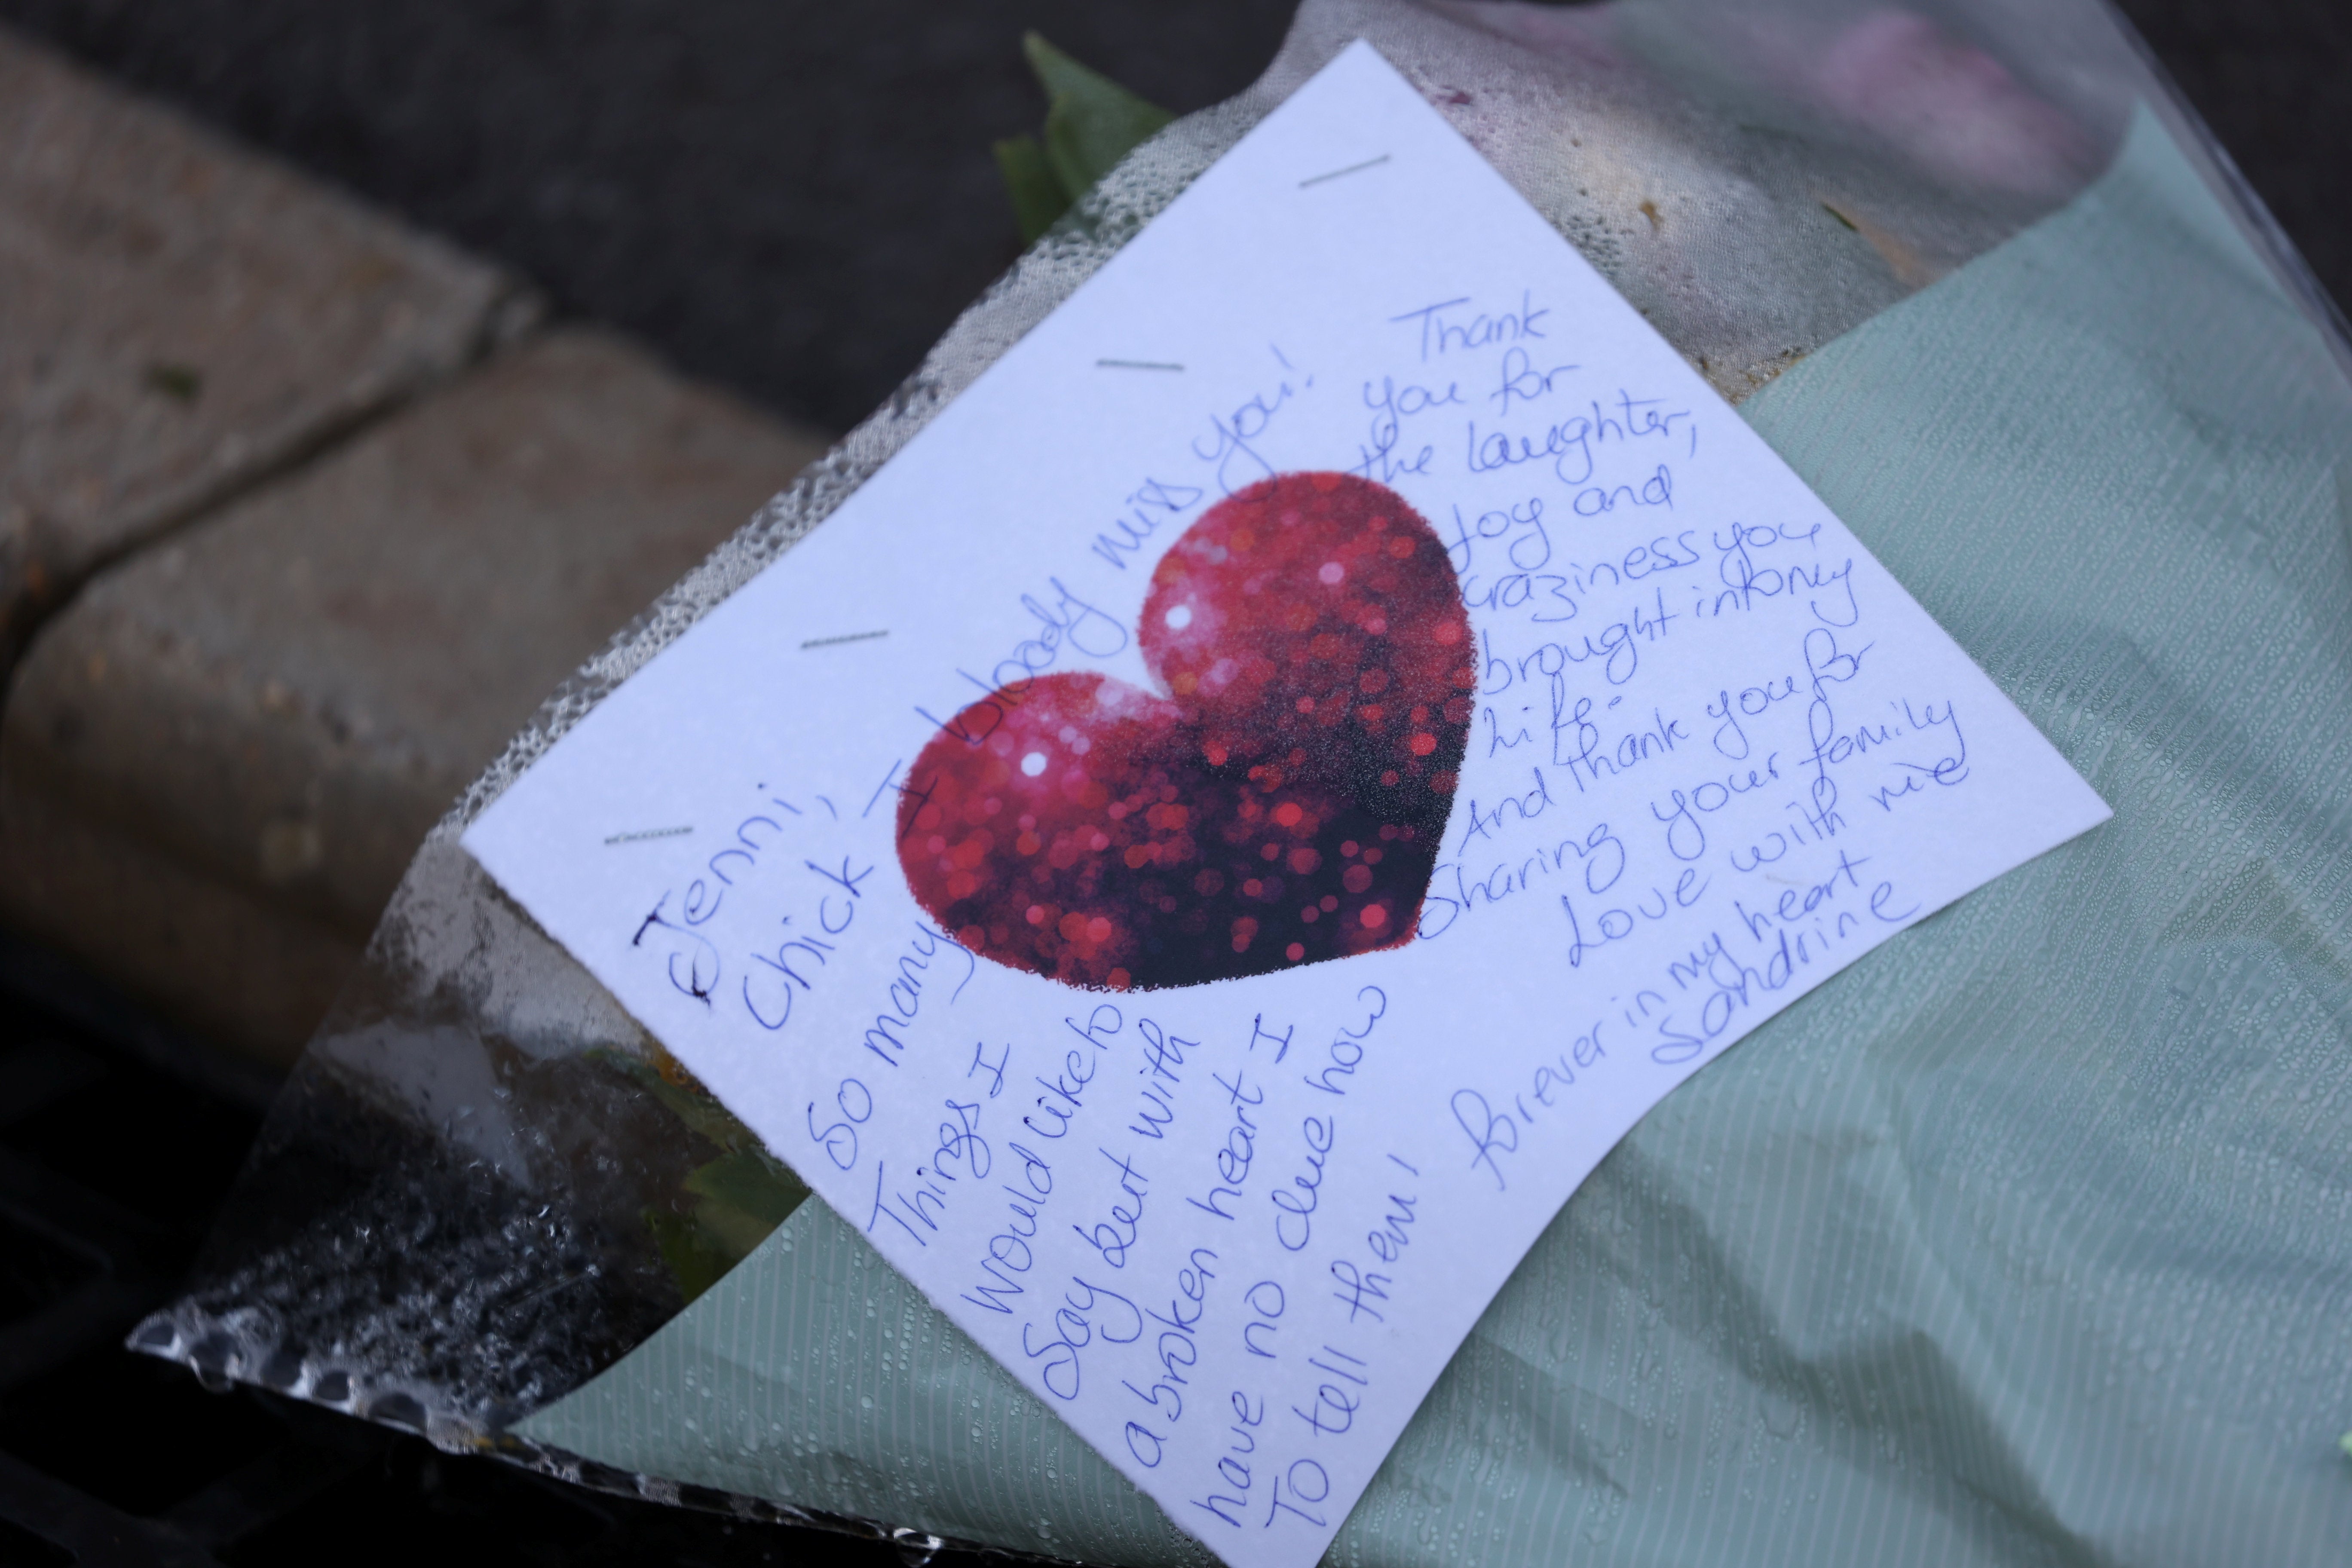 Jenni,
Chick I bloody miss you!
So many
Things I
would like to
Say but with
a broken heart I
have no clue how
To tell them!
Thank
you for
the laughter,
Joy and
craziness you
brought into my
Life.
And thank you for
Sharing your family
Love with me
Forever in my heart
Sandrine